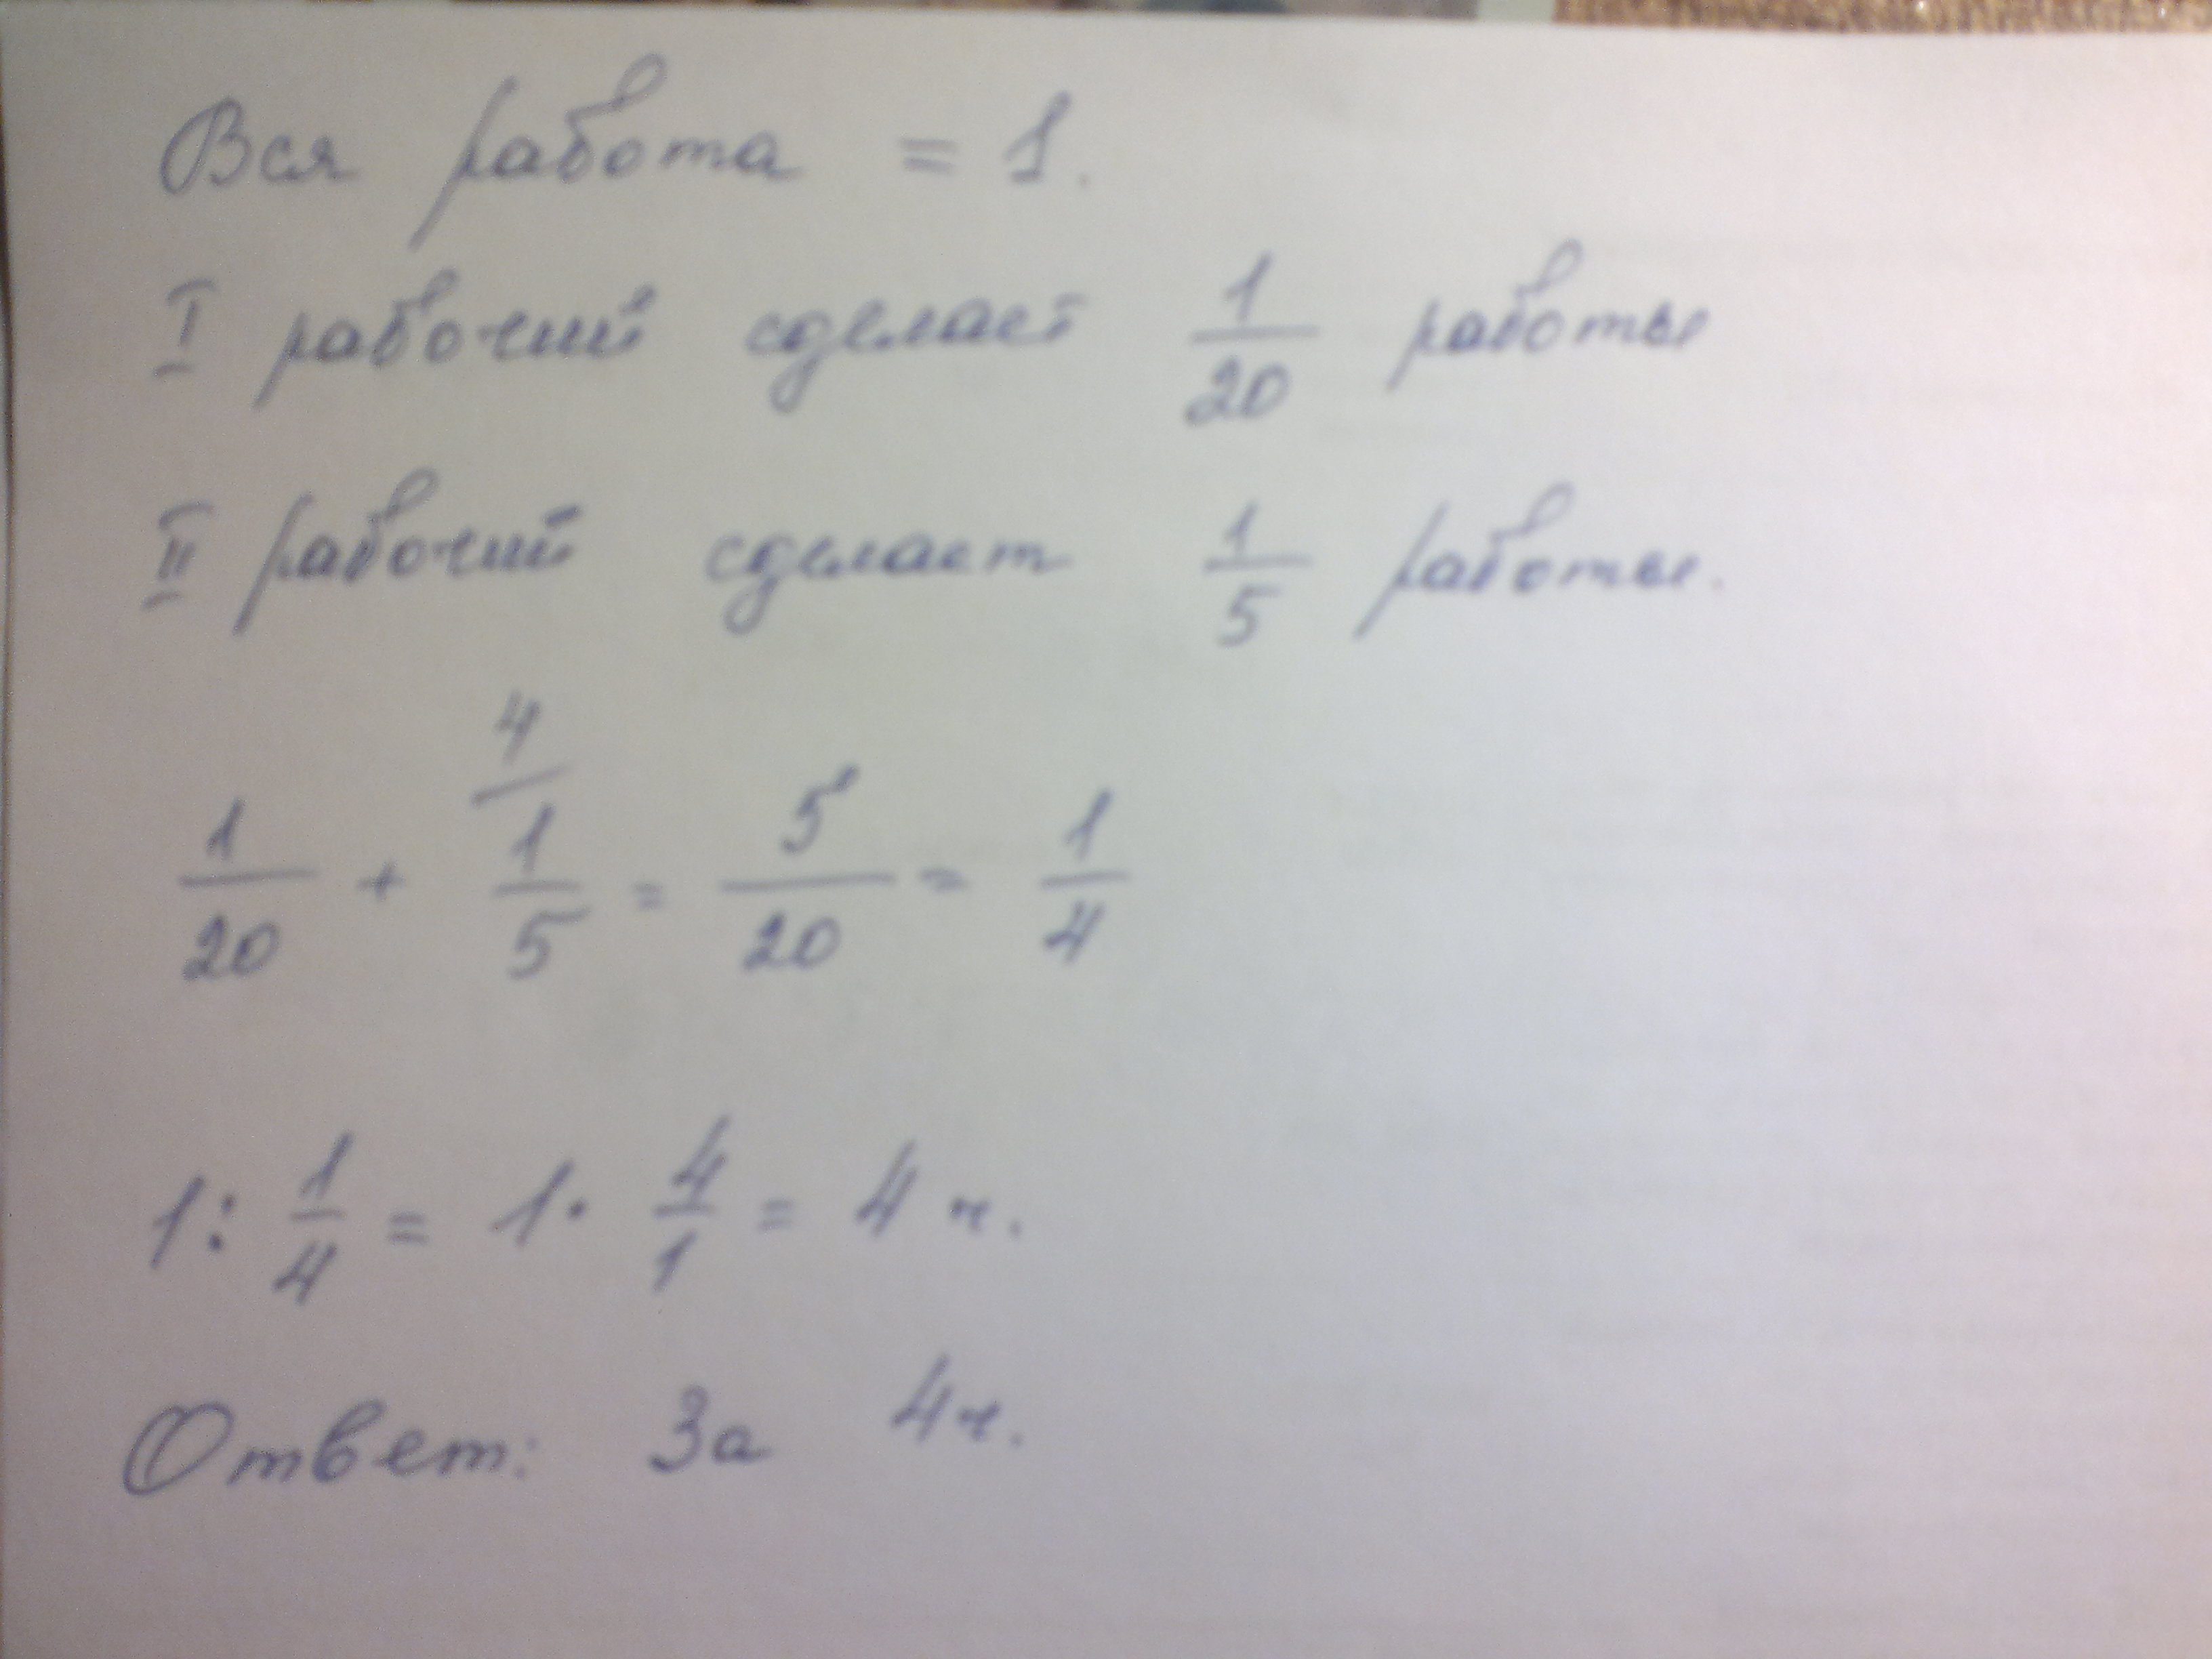 Вся работа = 1.
I рабочий сделает 1/20 работы
II рабочий сделает 1/5 работы.
1/20 + 4/ 1/5 = 5/20 = 1/4
1 : 1/4 = 1 · 4/1 = 4 ч.
Ответ: За 4ч.